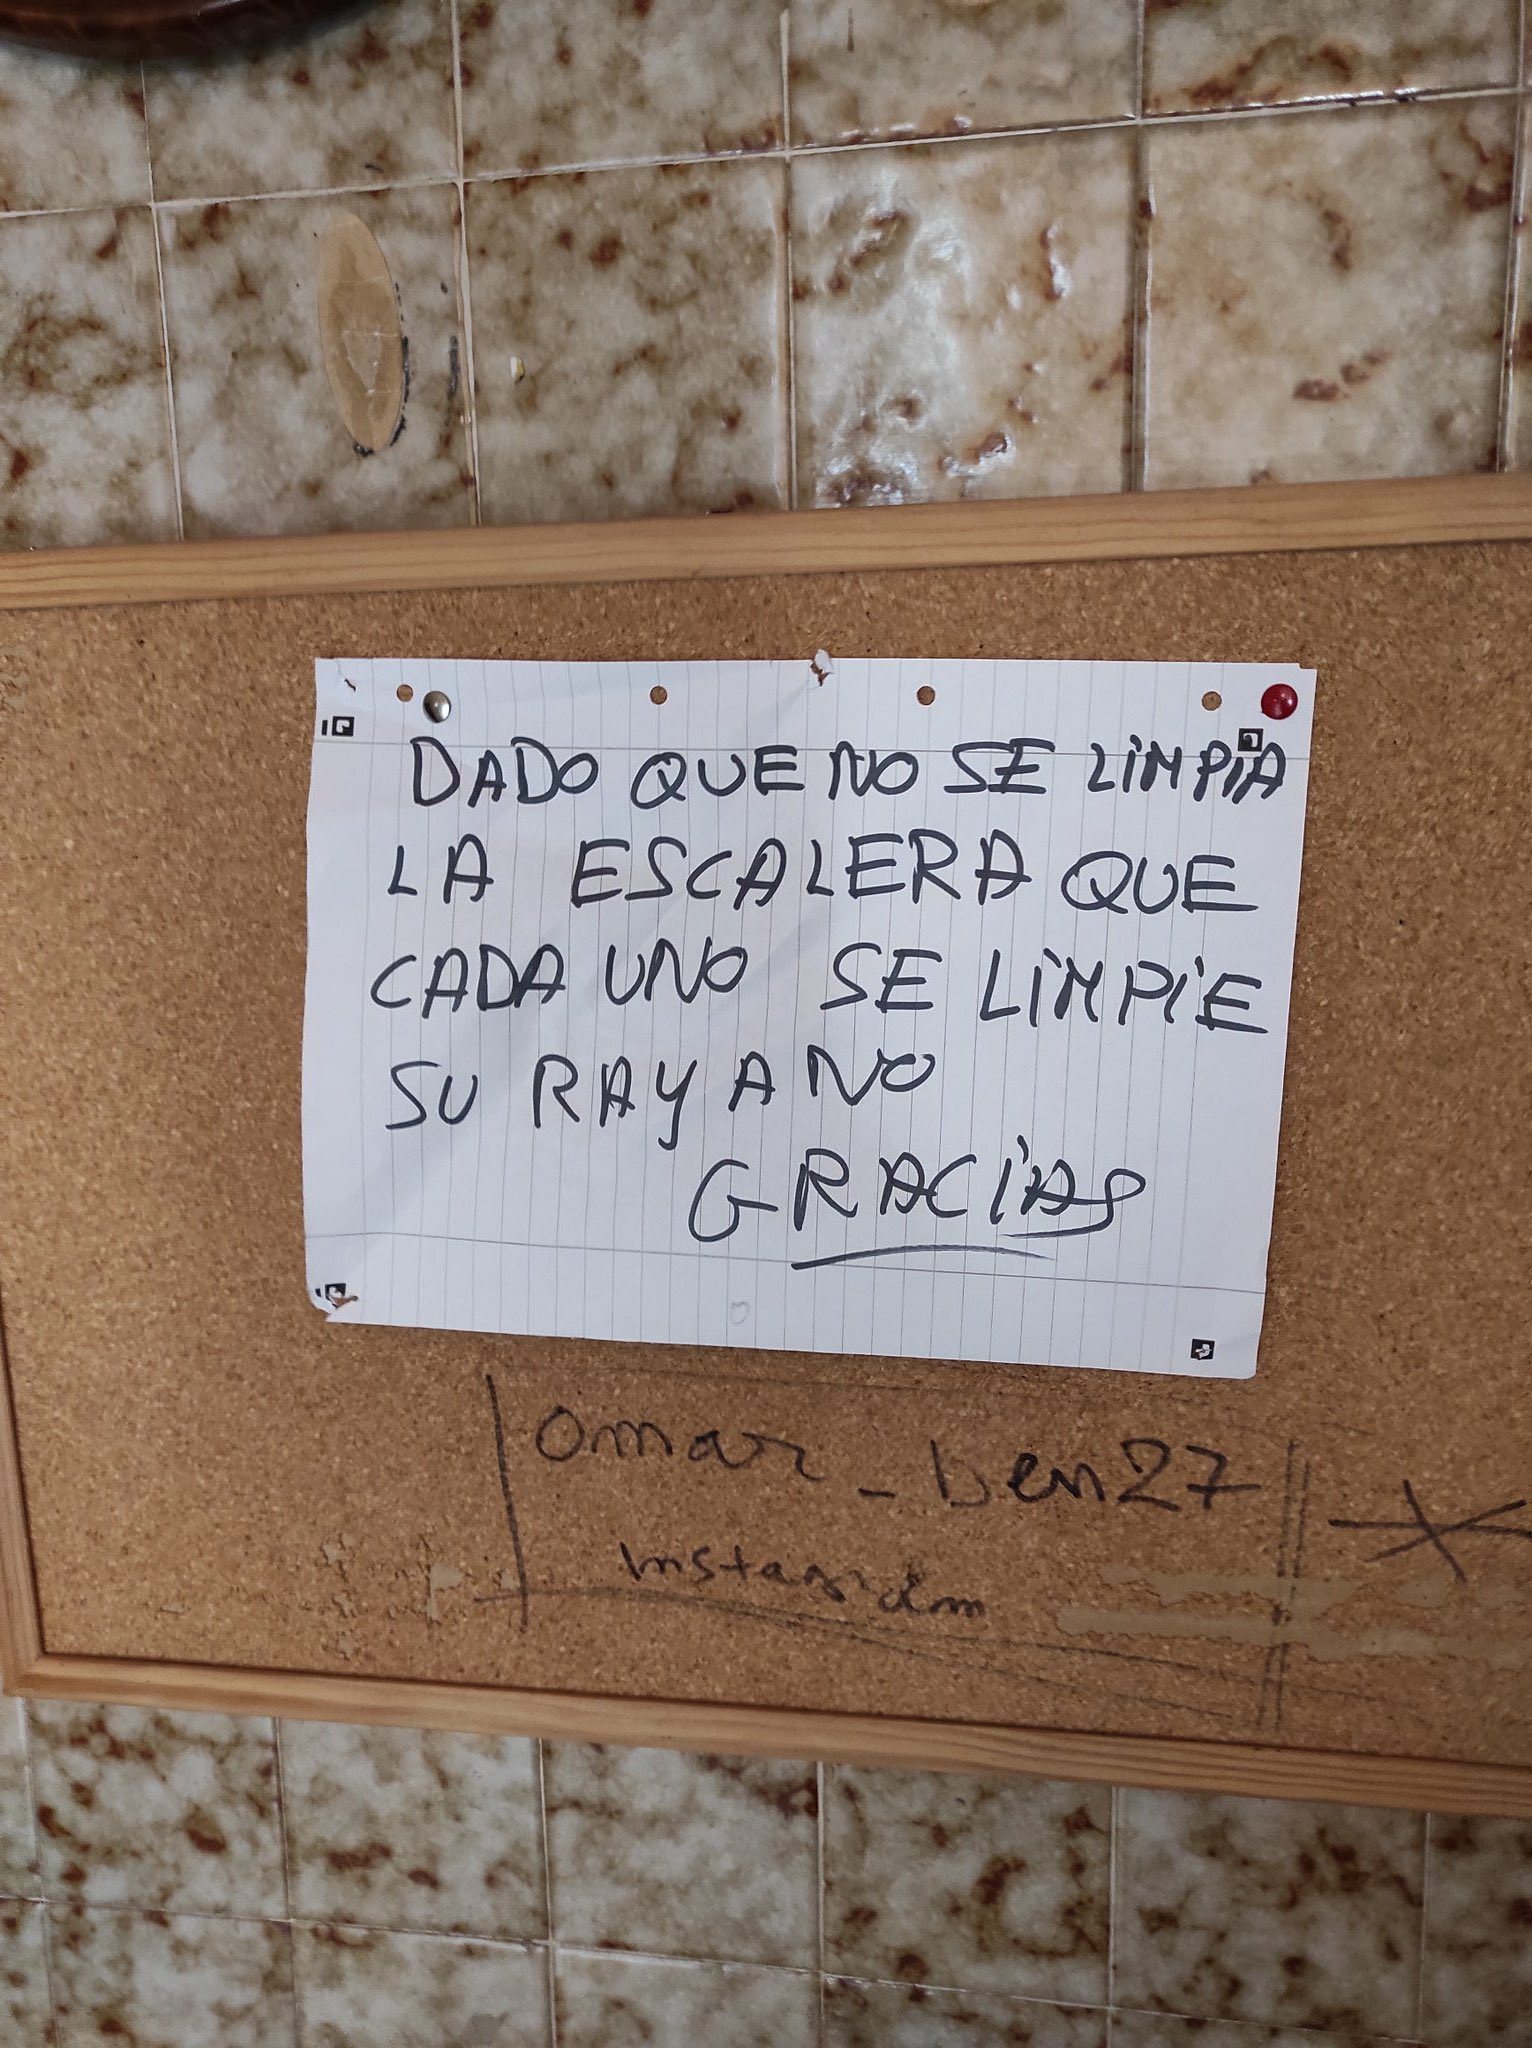 DADO QUE NO SE LIMPIA
LA ESCALERA QUE
CADA UNO SE LIMPIE
SU RAYANO
GRACIAS
omar_ben27
instagram